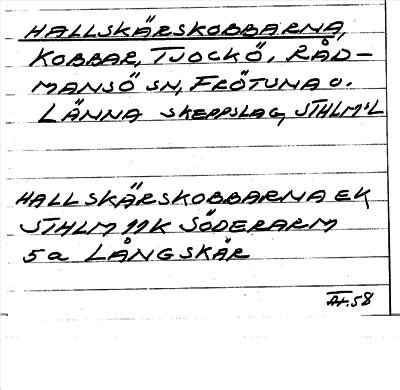 HALLSKÄRSKOBBARNA,
KOBBAR, TJOCKÖ, RÅD-
MANSÖ SN, FRÖTUNA O.
LÄNNA SKEPPSLAG, STHLM'L
HALLSKÄRSKOBBARNA EK
STHLM 11K SÖDERARM
5a LÅNGSKÄR
.58